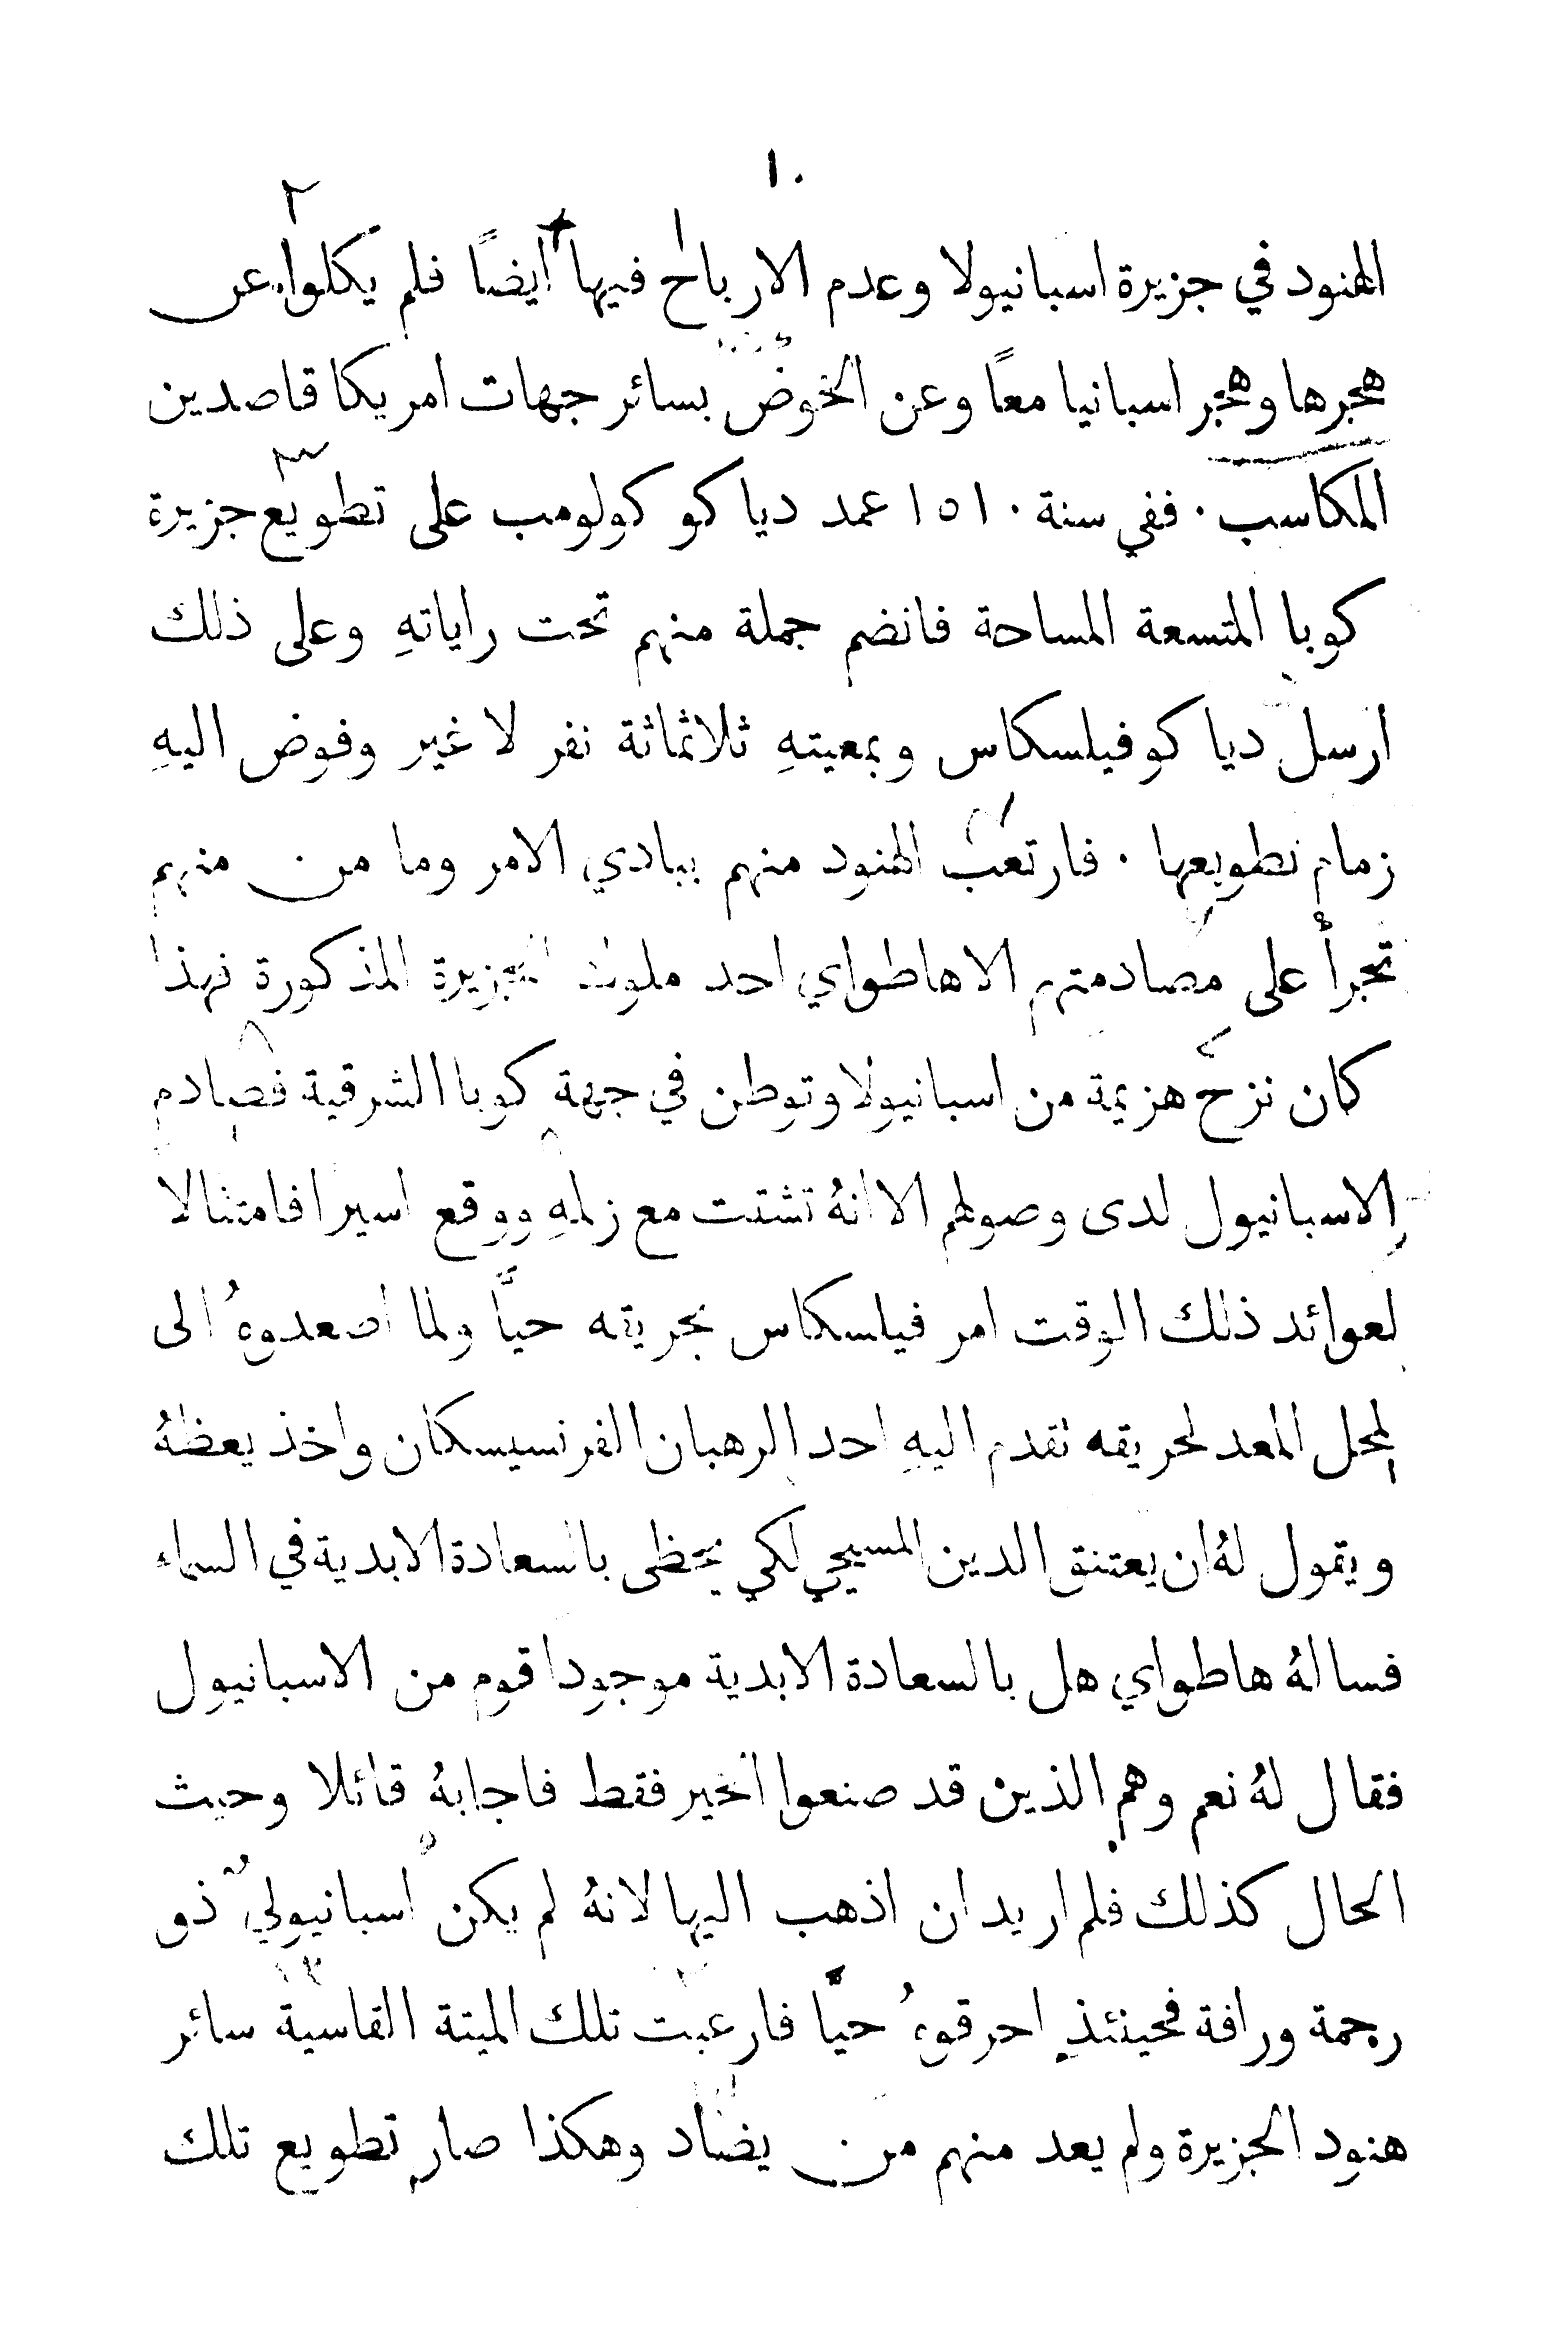 ١٠
الهنود في جزيرة اسبانيولا وعدم الارباح فيها ايضًا فلم يكلوا عن
هجرها وهجر اسبانيا معًا وعن الخوض بسائر جهات امريكا قاصدين
المكاسب . ففي سنة ١٥١٠ عمد دياكو كولومب على تطويع جزيرة
كوبا المتسعة المساحة فانضم جملة منهم تحت راياتهِ وعلى ذلك
ارسل دياكو فيلسكاس وبمعيتهِ ثلاثمائة نفر لا غير وفوض اليهِ
زمام تطويعها . فارتعب الهنود منهم ببادي الامر وما من منهم
تجرأ على مصادمتهم الا هاطواي احد ملوك الجزيرة المذكورة فهذا
كان نزح هزيمة من اسبانيولا وتوطن في جهة كوبا الشرقية فصادم
الاسبانيول لدى وصولهم الا انهُ تشتت مع زلمهِ ووقع اسيرا فامتثالا
لعوائد ذلك الوقت امر فيلسكاس بحريقه حيًّا ولما اصعدوهُ الى
المحل المعد لحريقه تقدم اليهِ احد الرهبان الفرنسيسكان واخذ يعظهُ
ويقول لهُ ان يعتنق الدين المسيحي لكي يحظى بالسعادة الابدية في السماء
فسالهُ هاطواي هل بالسعادة الابدية موجود اقوم من الاسبانيول
فقال لهُ نعم وهم الذين قد صنعوا الخير فقط فاجابهُ قائلا وحيث
الحال كذلك فلم اريد ان اذهب اليها لانهُ لم يكن اسبانيوليٌ ذو
رحمة ورافة فحينئذٍ احرقوهُ حيًّا فارعبت تلك الميتة القاسية سائر
هنود الجزيرة ولم يعد منهم من يضاد وهكذا صار تطويع تلك